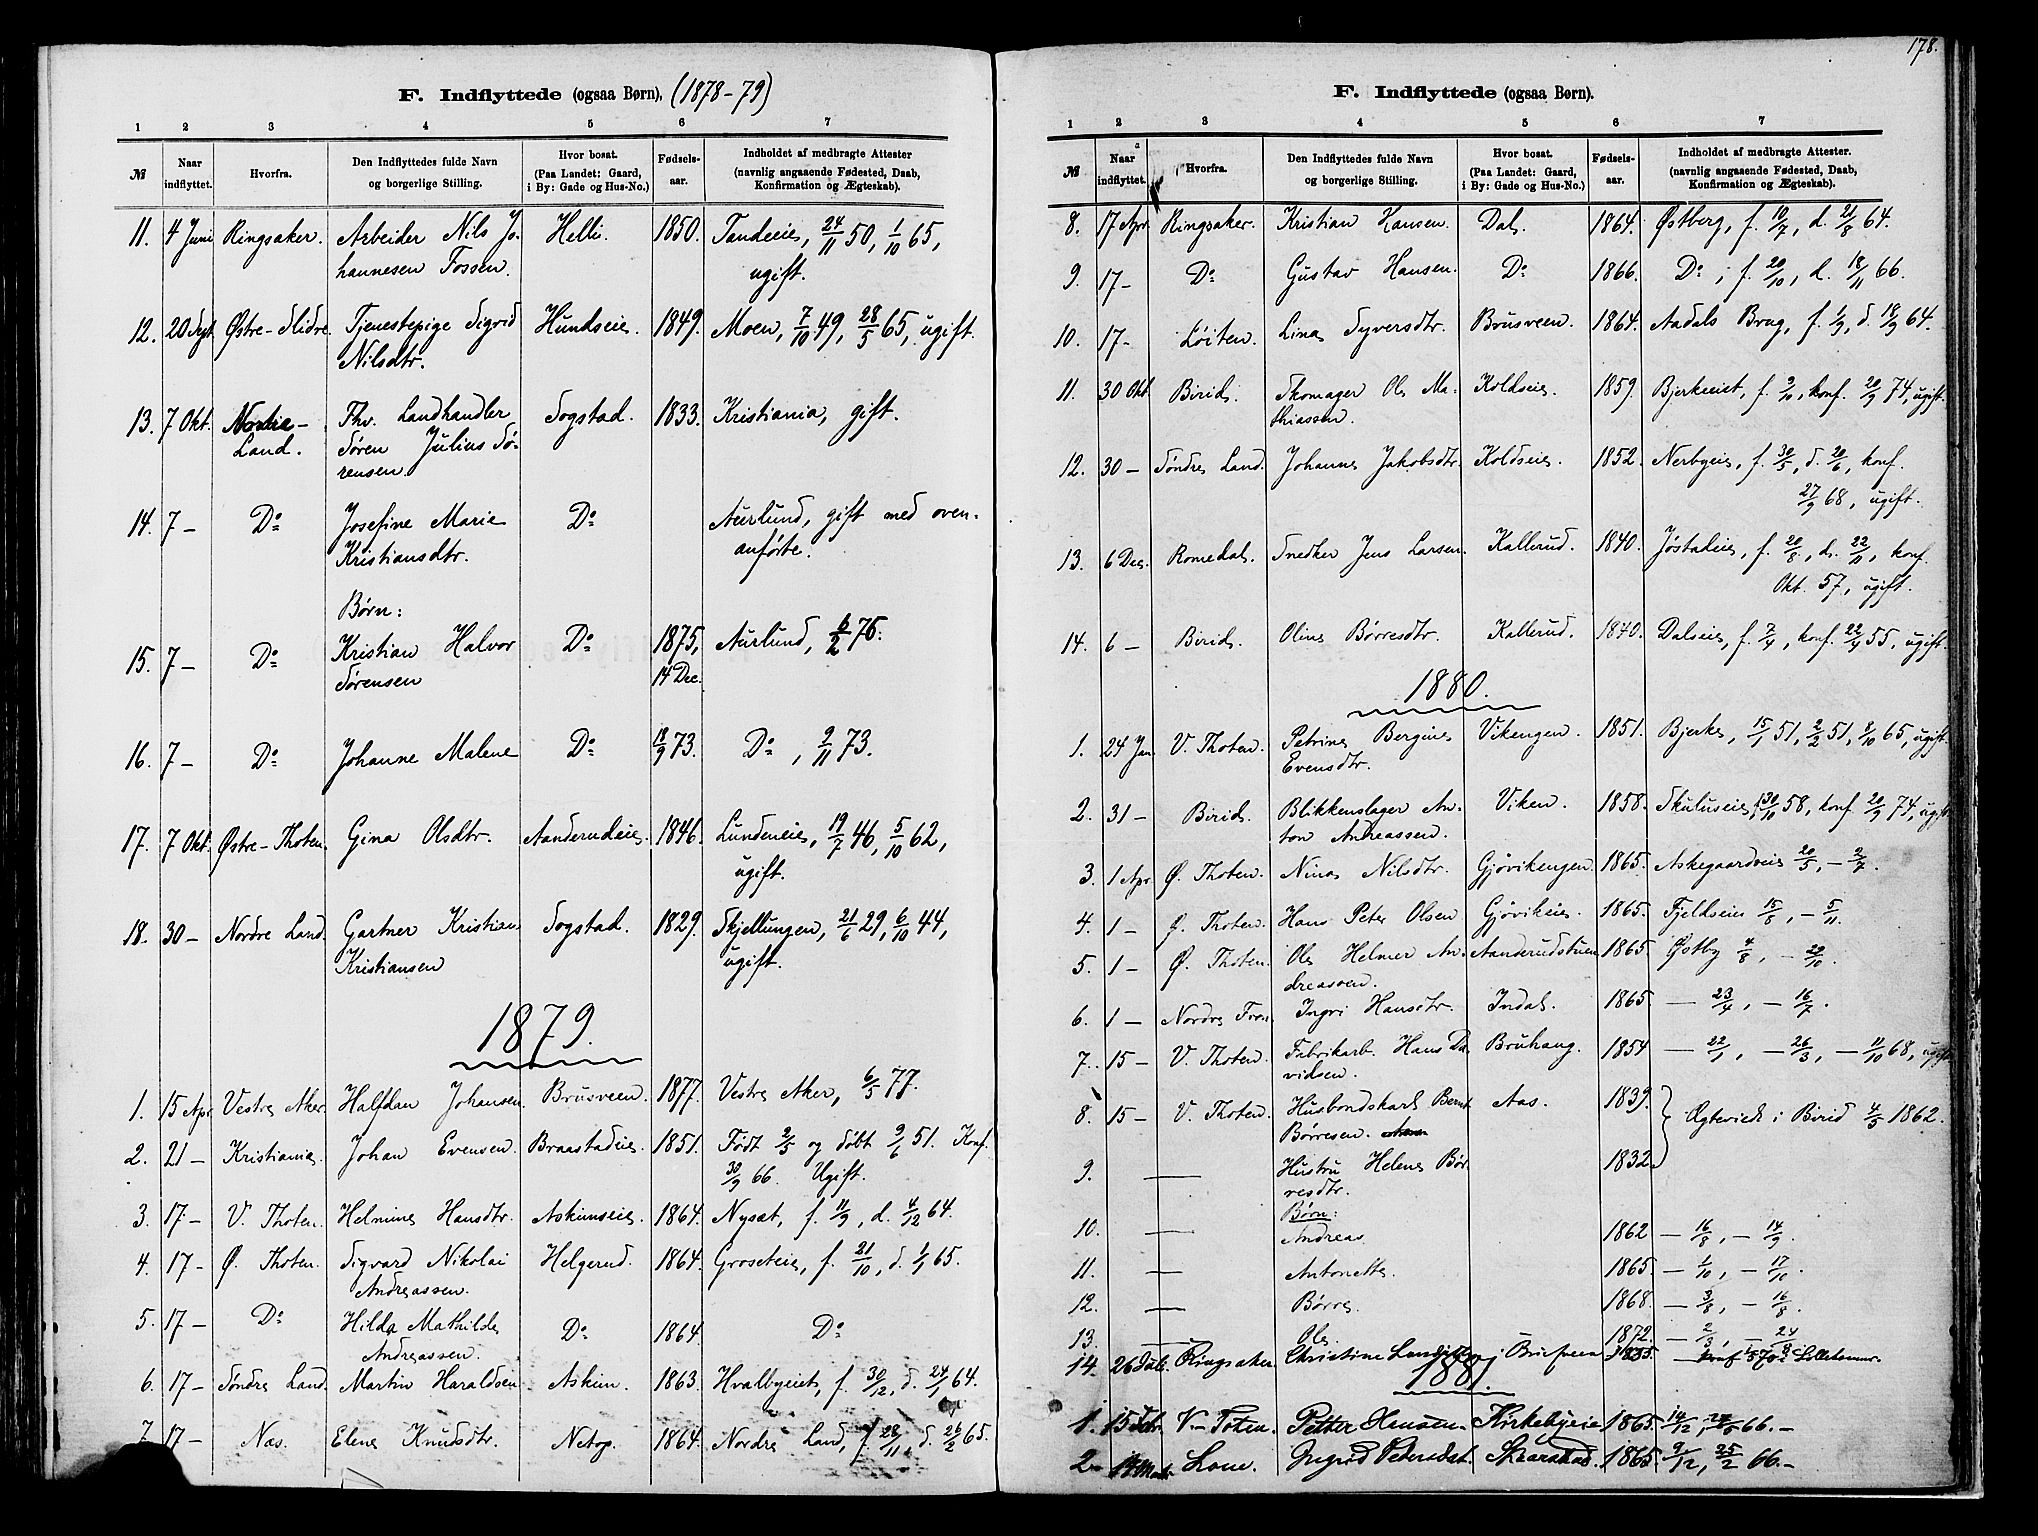 F. Indflyttede (ogsaa Børn). (1878-79)
1 2 3 4 5 6 7
№ Naar indflyttet. Hvorfra. Den Indflyttedes fulde Navn og borgerlige Stilling. Hvor bosat. (Paa Landet: Gaard, i By: Gade og Hus-No.) Fødsels-aar. Indholdet af medbragte Attester (navnlig angaaende Fødested, Daab, Konfirmation og Ægteskab).
11. 4 Juni Ringsaker. Arbeider Nils Jo- Helli. 1850. Tandeeie, 24/11 50, 1/10 65,
hannesen Fossen. ugift.
12. 20 Sept. Østre-Slidre. Tjenestepige Sigrid Hundseie. 1849. Moen, 7/10 49, 28/5 65, ugift.
Nilsdtr.
13. 7 Okt. Nordre- Fhv. Landhandler Sogstad. 1833. Kristiania, gift.
Land. Søren Julius Sø-
rensen.
14. 7 – Do Josefine Marie Do Aurlund, gift med oven-
Kristiansdtr. anførte.
Børn:
15. 7 – Do Kristian Halvor Do 1875, Aurlund, 6/2 76.
Sørensen 14 Dec.
16. 7 – Do Johanne Malene Do 18/9 73. Do, 9/11 73.
17. 7 Okt. Østre-Thoten. Gina Olsdtr. Aanderudeie. 1846. Lundeneie, 19/7 46, 5/10 62,
ugift.
18. 30 – Nordre Land. Gartner Kristian Sogstad. 1829. Skjellungen, 21/6 29, 6/10 44,
Kristiansen ugift.
1879.
1. 15 Apr. Vestre Aker. Halfdan Johansen. Brusveen. 1877. Vestre Aker, 6/5 77.
2. 21 – Kristiania. Johan Evensen. Braastadeie. 1851. Født 2/5 og døbt 9/6 51. Konf.
30/9 66. Ugift.
3. 17 – V. Thoten. Helmine Hansdtr. Askimseie. 1864. Nysæt, f. 11/9, d. 4/12 64.
4. 17 – Ø. Thoten. Sigvard Nikolai Helgerud. 1864. Groseteie, f. 21/10, d. 1/1 65.
Andreassen.
5. 17 – Do Hilda Mathilde Do 1864. Do
Andreassen.
6. 17 – Søndre Land. Martin Haraldsen Askim. 1863. Hvalbyeiet, f. 30/12, d. 24/1 64.
7. 17 – Næs. Elene Knudsdtr. Netop. 1864. Nordre Land, f. 28/11, d. 26/2 65.
178.
F. Indflyttede (ogsaa Børn).
1 2 3 4 5 6 7
№ Naar indflyttet. Hvorfra. Den Indflyttedes fulde Navn og borgerlige Stilling. Hvor bosat. (Paa Landet: Gaard, i By: Gade og Hus-No.) Fødsels-aar. Indholdet af medbragte Attester. (navnlig angaaende Fødested, Daab, Konfirmation og Ægteskab).
8. 17 Apr. Ringsaker. Kristian Hansen. Dal. 1864. Østberg, f. 10/7, d. 21/8 64.
9. 17 – Do Gustav Hansen. Do 1866. Do, f. 20/10, d. 18/11 66.
10. 17 – Løiten. Lina Syversdtr. Brusveen. 1864. Aadals Brug, f. 1/9, d. 18/9 64.
11. 30 Okt. Birid. Skomager Ole Ma- Koldseie. 1859. Bjerkeeiet, f. 9/10, konf. 20/9 74, ugift.
thiassen.
12. 30 – Søndre Land. Johanne Jakobsdtr. Koldseie. 1852. Nerbyeie, f. 30/5, d. 20/6, konf.
27/9 68, ugift.
13. 6 Dec. Romedal. Snedker Jens Larsen. Kallerud. 1840. Jøstadeie, f. 20/8, d. 22/11, konf.
Okt. 57, ugift.
14. 6 – Birid. Oline Børresdtr. Kallerud. 1840. Dalseie, f. 7/4, konf. 22/4 55, ugift.
1880.
1. 24 Jan V. Thoten. Petrine Bergine Vikengen. 1851. Bjerke, 15/1 51, 2/2 51, 8/10 65, ugift.
Evensdtr.
2. 31 – Birid. Blikkenslager An- Viken. 1858. Skuluseie, 30/10 58, konf. 20/9 74, ugift.
ton Andreassen.
3. 1 Apr. Ø. Thoten. Nina Nilsdtr. Gjøvikengen. 1865. Askegaardveie 20/5, – 2/7.
4. 1 – Ø. Thoten. Hans Peter Olsen Gjøvikeie. 1865. Fjeldseie 15/8, – 5/11.
5. 1 – Ø. Thoten. Ole Helmer An- Aanderudstuen 1865. Østby 4/8, – 29/10.
dreassen.
6. 1 – Nordre Fron Ingri Hansdtr. Indal. 1865 — 23/4, – 16/7.
7. 15 – V. Thoten. Fabrikarb. Hans Da- Bruhaug. 1854 — 22/1, – 26/3, – 11/10 68, ugift.
vidsen.
8. 15 – V. Thoten. Husbondskarl Bernt Aas. 1839. Ægteviede i Birid 4/5 1862.
Børresen.
9. — Hustru Helene Bør- 1832.
resdtr.
Børn:
10. — Andreas. 1862 — 16/8, – 14/9.
11. — Antonette. 1865. — 1/10, – 17/10.
12. — Børre. 1868. — 3/8, – 16/8.
13. — Ole. 1872. — 2/3, – 24/3.
14. 26 Ringsaker. Christine 1855. Konf. Lillehammer.
1881.
1. 15 V– Toten. Petter Hansen. Kirkebyeie 1865. 14/12, 66.–
2. Ingrid Petersdat. Skaarstad. 1865. 9/12, 25/2 66.–